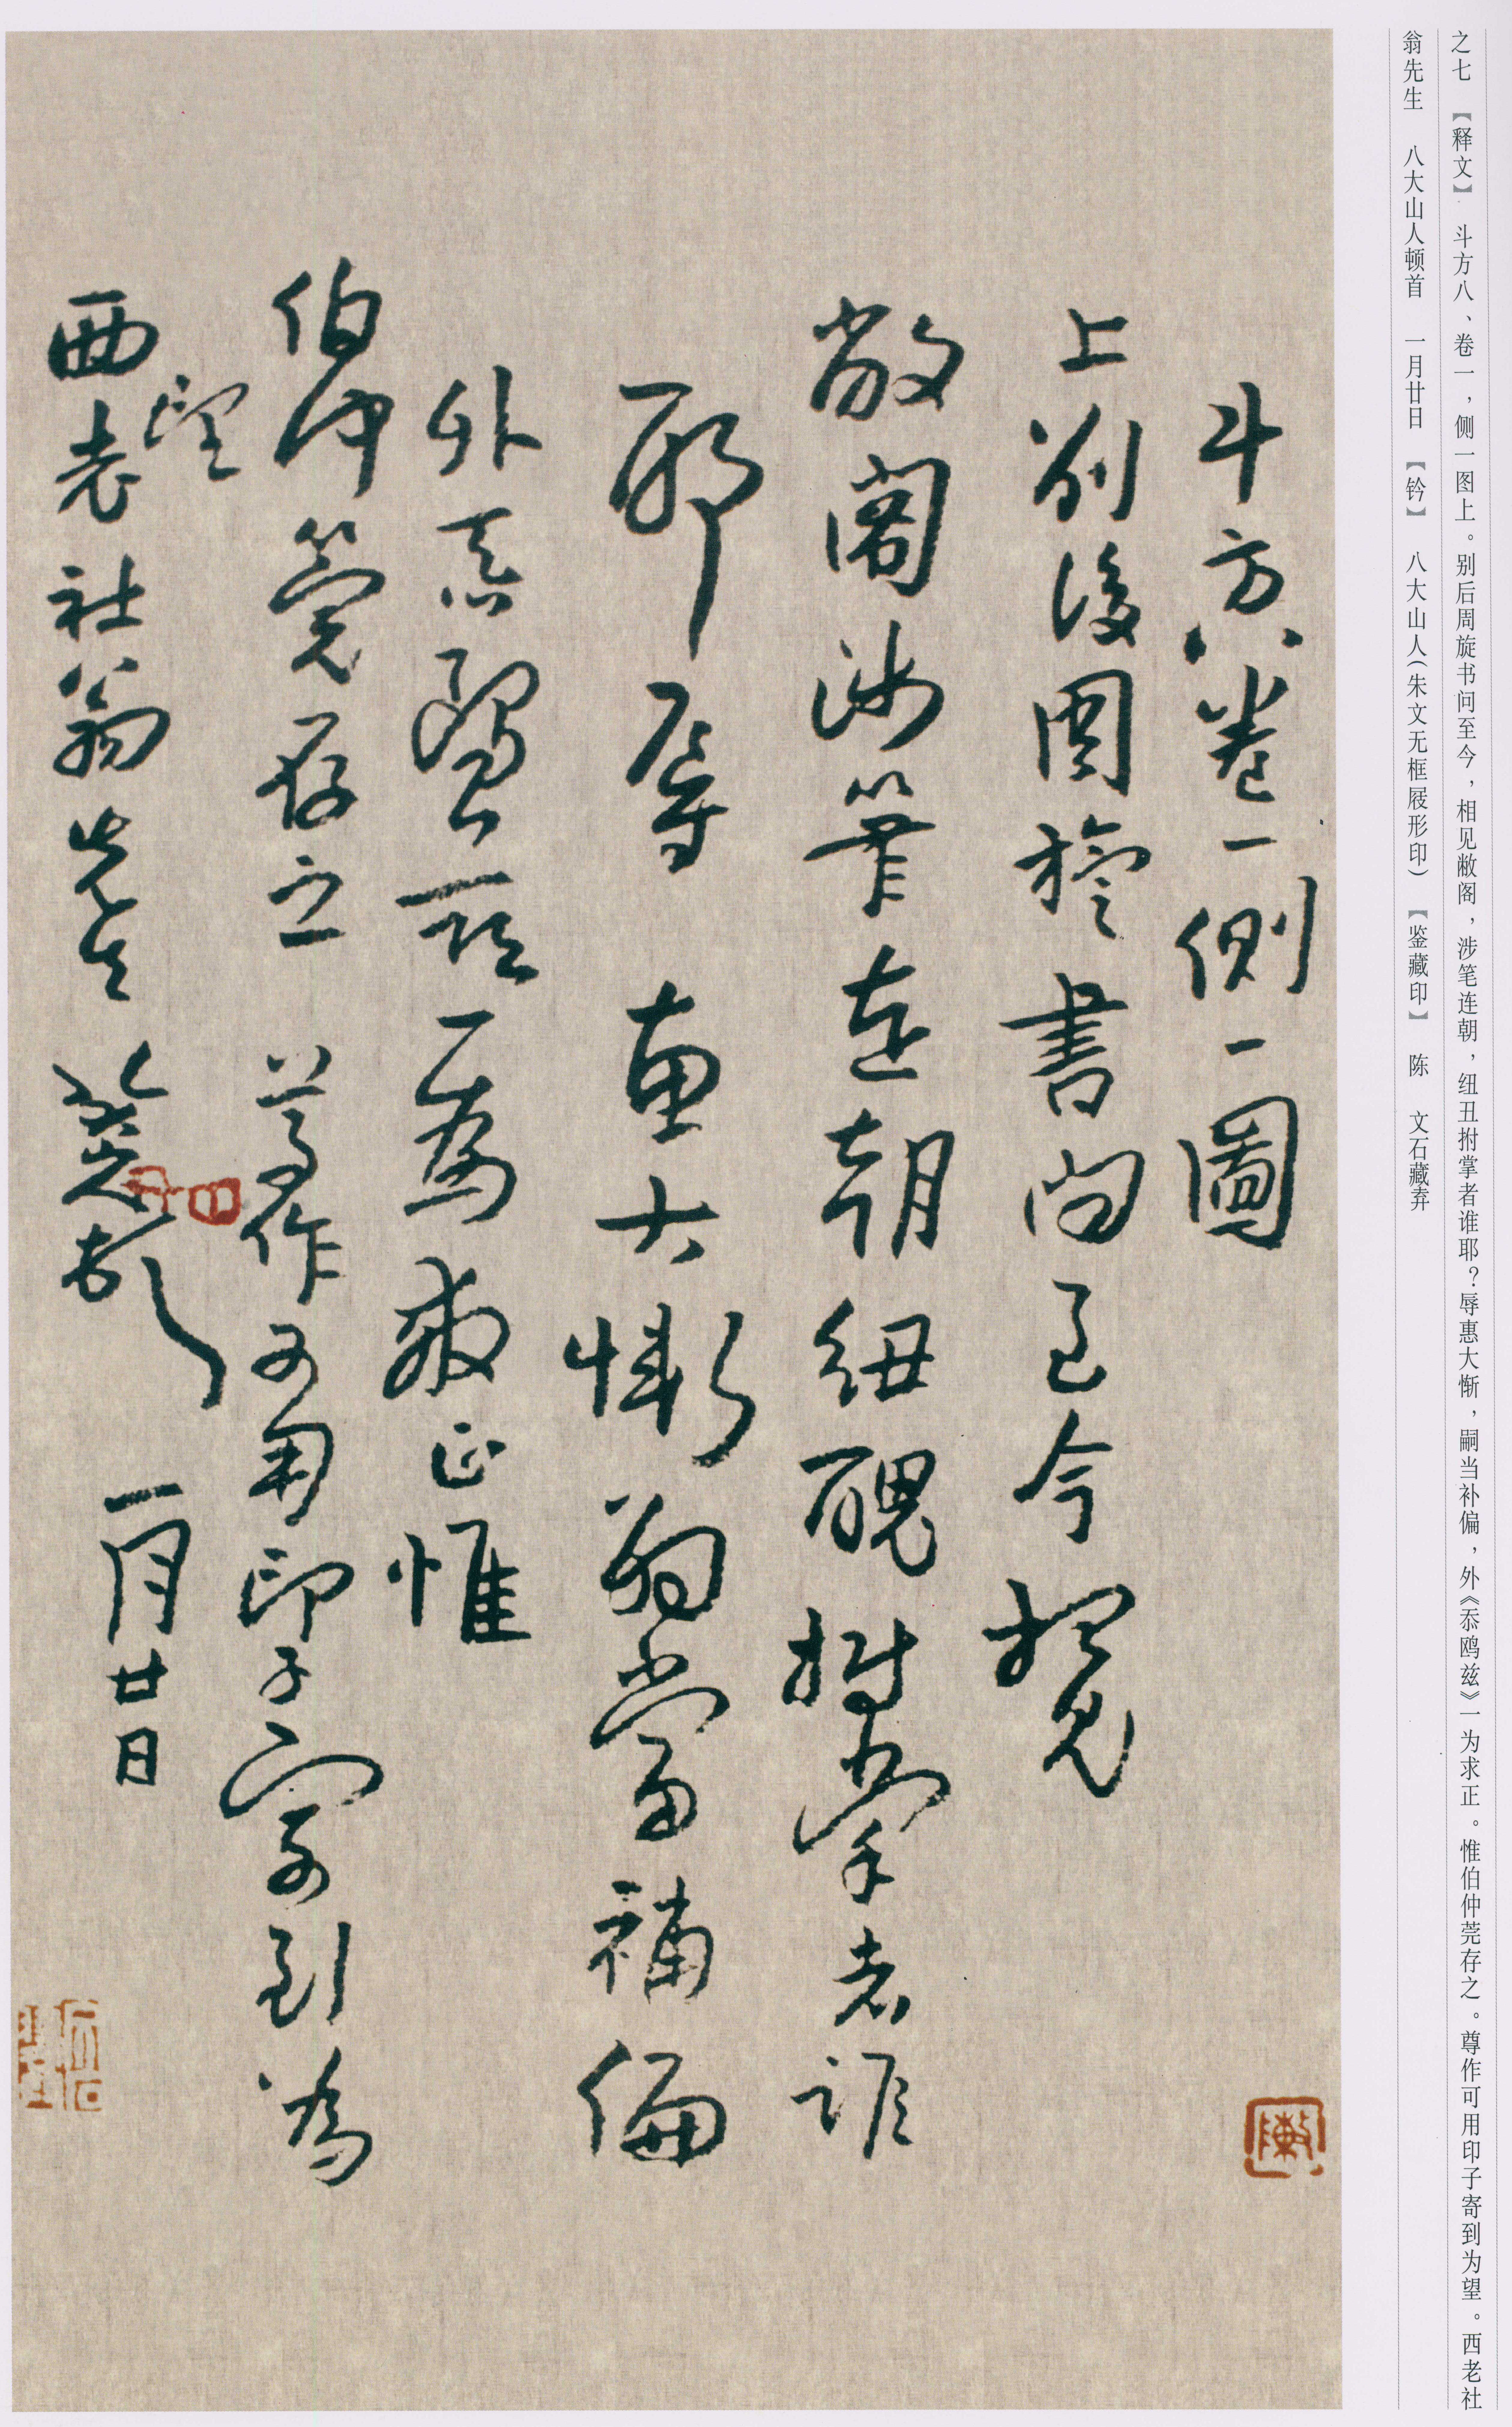 之七 【释文】 斗方八、卷一，侧一图上。别后周旋书问至今，相见敝阁，涉笔连朝，纽丑拊掌者谁耶？辱惠大惭，嗣当补偏，外《忝鸥兹》一为求正。惟伯仲莞存之。尊作可用印子寄到为望。西老社
翁先生 八大山人顿首 一月廿日 【钤】 八大山人（朱文无框屐形印） 【鉴藏印】 陈 文石藏弆
斗方八卷一側一圖
上別後周旋書問至今相見
敝閣涉筆連朝紐醜拊掌者誰
耶辱惠大慚嗣當補偏
外忝鷗茲一為求正惟
伯仲莞存之尊作可用印子寄到為
望
西老社翁先生 八大山人頓首 一月廿日
陳